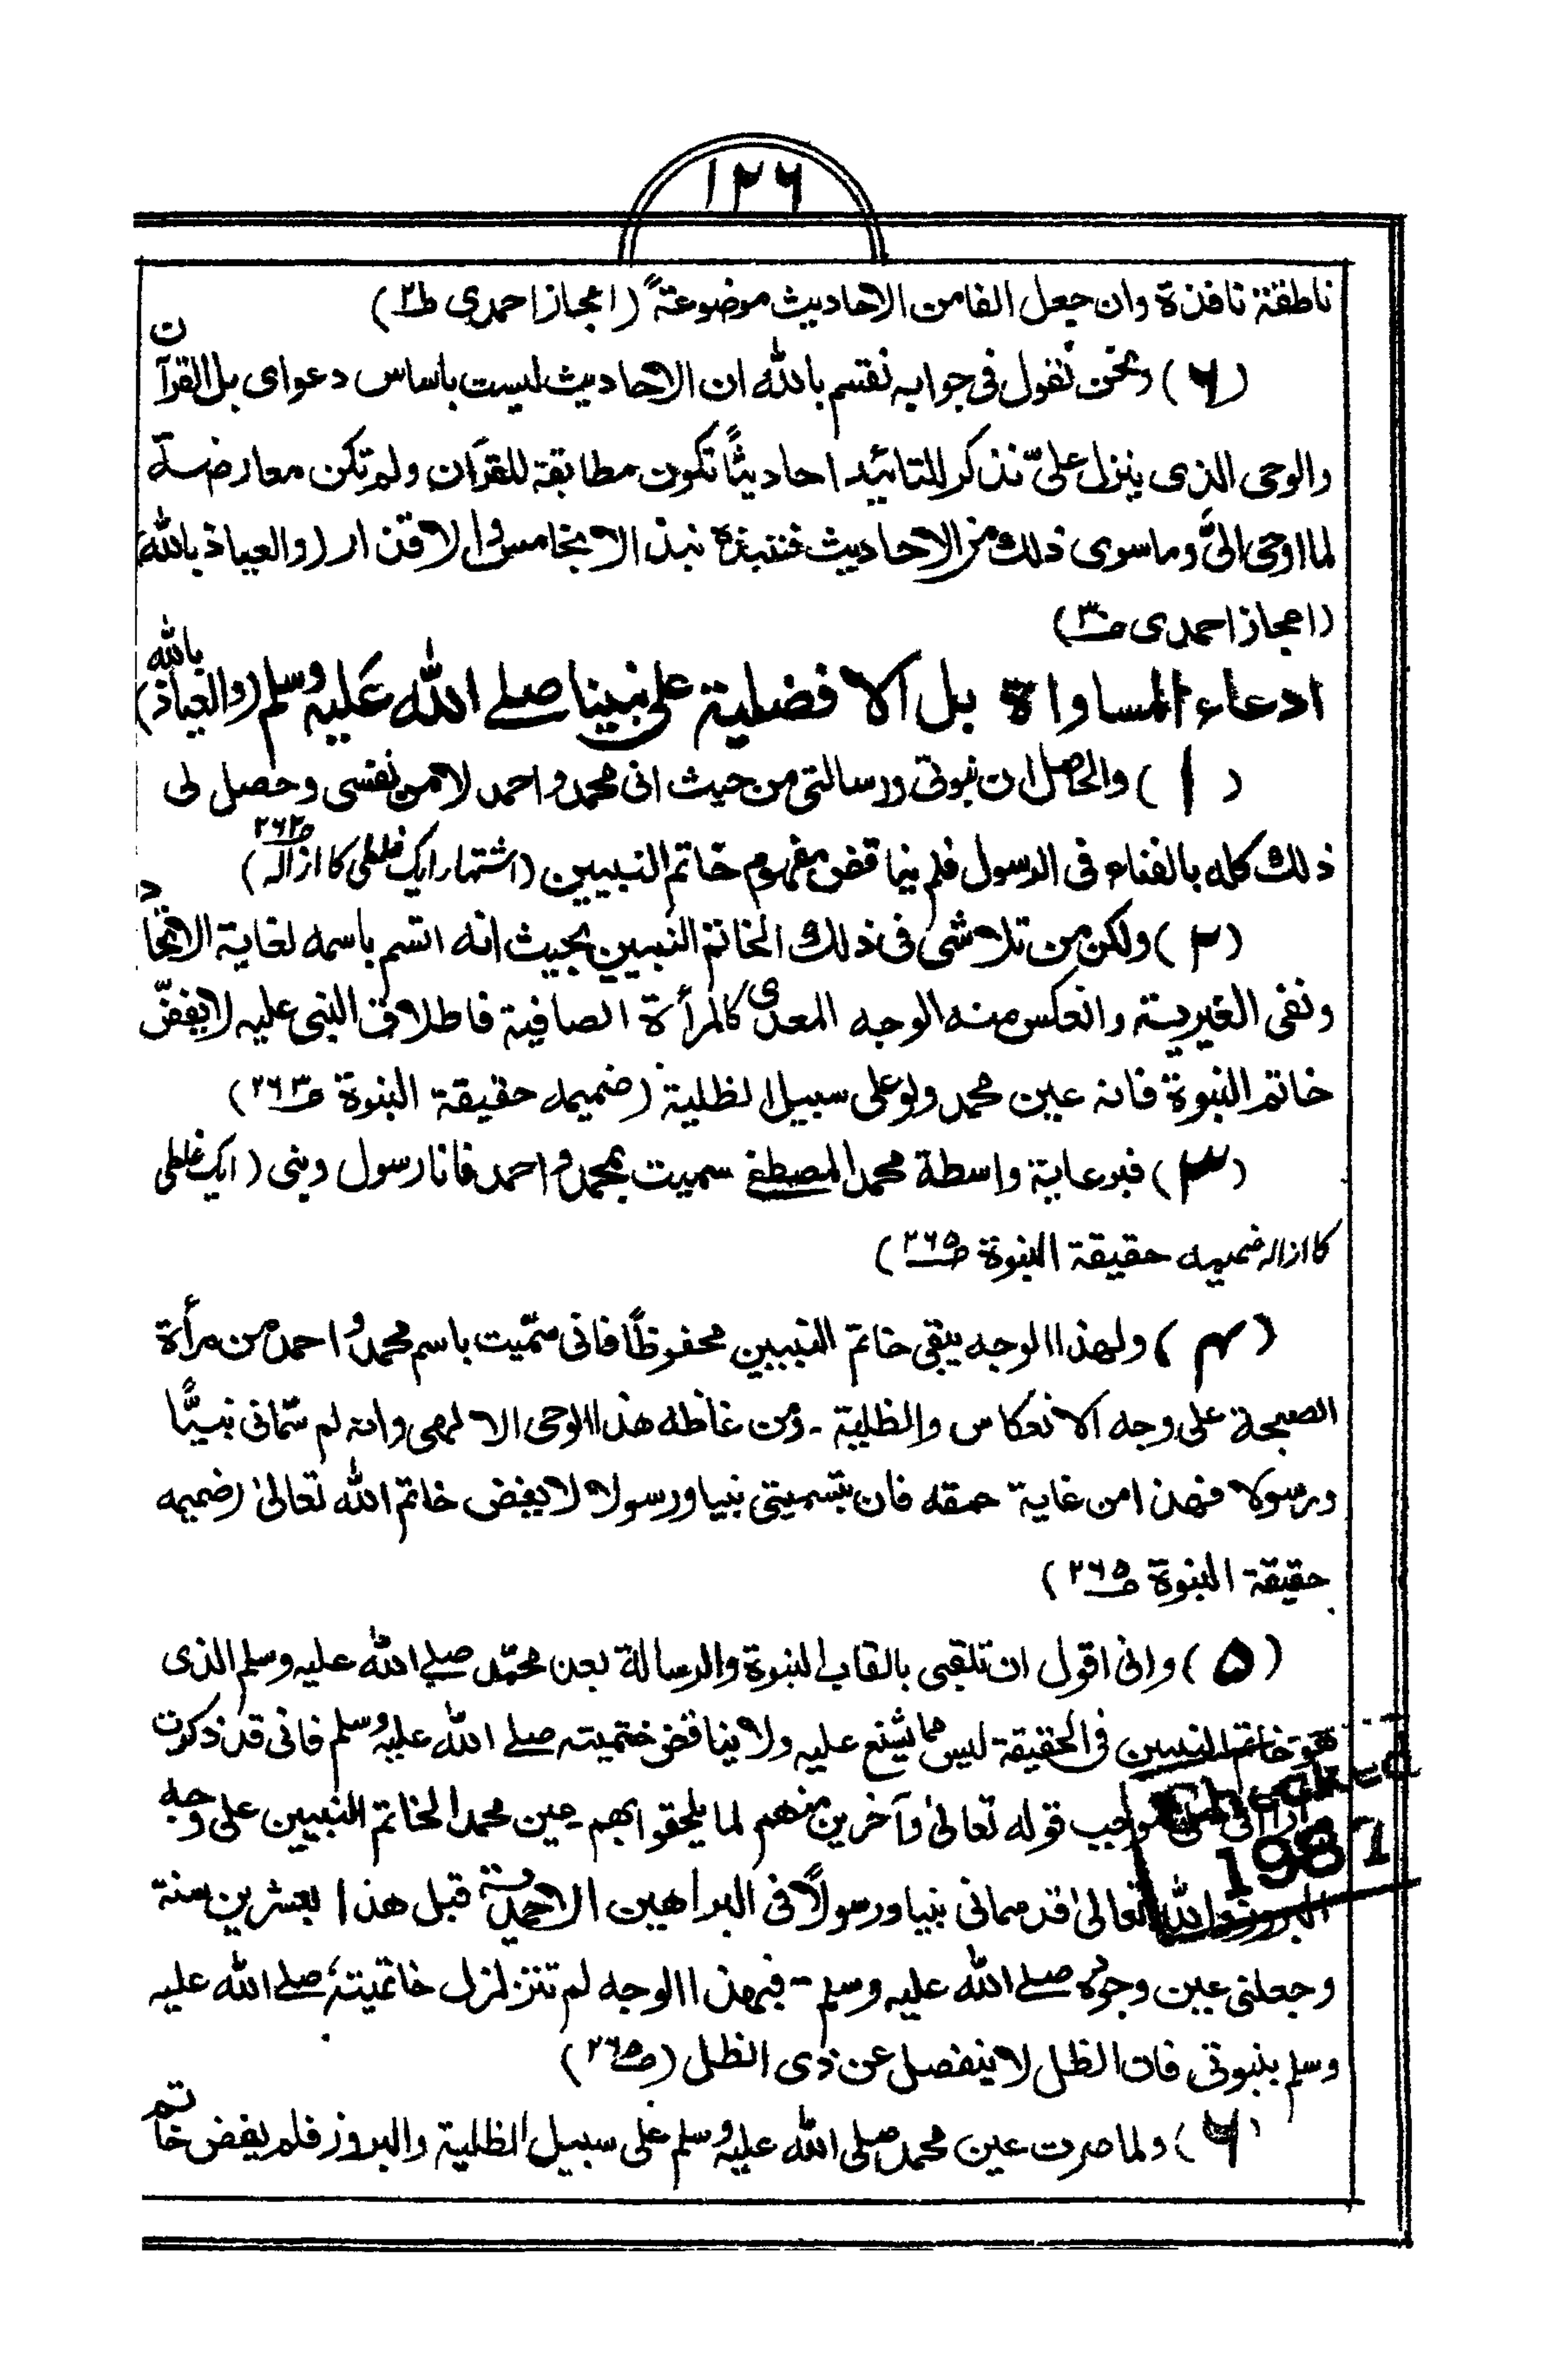 ۱۲۶
ناطقة نافذة وان جعل الفا من الاحاديث موضوعة" (اعجاز احمدی ط۲)
(۶) ونحن نقول فى جوابہ نقسم بالله ان الاحاديث ليست باساس دعوای بل القرآن
والوحى الذى ينزل علىّ نذكر للتائيد احاديثًا تكون مطابقة للقرآن ولم تكن معارضة
لما اوحى الىَّ وما سوى ذلك من الاحاديث فننبذه نبذ الانجاس والاقذار (والعياذ بالله)
(اعجاز احمدی ص۳۰)
ادعاء المساواة بل الافضلية على نبينا صلے الله عليہ وسلم (والعياذ بالله)
(۱) والحاصل ان نبوتى ورسالتى من حيث انى محمد واحمد لا من نفسى وحصل لى
ذلك كله بالفناء فى الرسول فلم يناقض مفهوم خاتم النبيين (اشتهار ايک غلطی کا ازالہ ص۲۶۲)
(۲) ولكن من تلاشى فى ذلك الخاتم النبيين بحيث انه اتسم باسمه لغاية الاتحاد
ونفى الغيرية وانعكس منه الوجه المحمدى كالمرأة الصافية فاطلاق النبى عليه لا يفضّ
خاتم النبوة فانه عين محمد ولو على سبيل الظلية (ضميمہ حقيقة النبوة ص۲۶۳)
(۳) فبرعاية واسطة محمد المصطفے سميت بمحمد واحمد فانا رسول ونبى (ايک غلطی
کا ازالہ ضميمہ حقيقة النبوة ص۲۶۵)
(۴) ولهذا الوجه يبقى خاتم النبيين محفوظًا فانى سمّيت باسم محمد واحمد من مرأة
على وجه الانعكاس والظلية - ومن غاظه هذا الوحى الالهى وانه لم سمّانى نبيًّا
ورسولا فهذا من غاية حمقه فان بتسميتى نبيا ورسولا لا يفض خاتم الله تعالىٰ (ضميمہ
حقيقة النبوة ص۲۶۵)
(۵) وانى اقول ان تلقبى بالقاب النبوة والرسالة بعد محمّد صلے الله عليه وسلم الذى
هو خاتم النبيين فى الحقيقة ليس مما يشنع عليه ولا يناقض ختميته صلے الله عليه وسلم فانى قد ذكرت
قوله تعالىٰ وآخرين منهم لما يلحقوا بهم عين محمد الخاتم النبيين على وجه
البروز والله تعالىٰ قد سمانى نبيا ورسولاً فى البراهين الاحمدية قبل هذا بعشرين سنة
وجعلنى عين وجوده صلے الله عليه وسلم - فبهذا الوجه لم تتزلزل خاتميته صلے الله عليه
وسلم بنبوتى فان الظل لا ينفصل عن ذى الظل (ص۲۶۵)
(۶) ولما صرت عين محمد صلى الله عليه وسلم على سبيل الظلية والبروز فلم يفض خاتم
Checked
1987